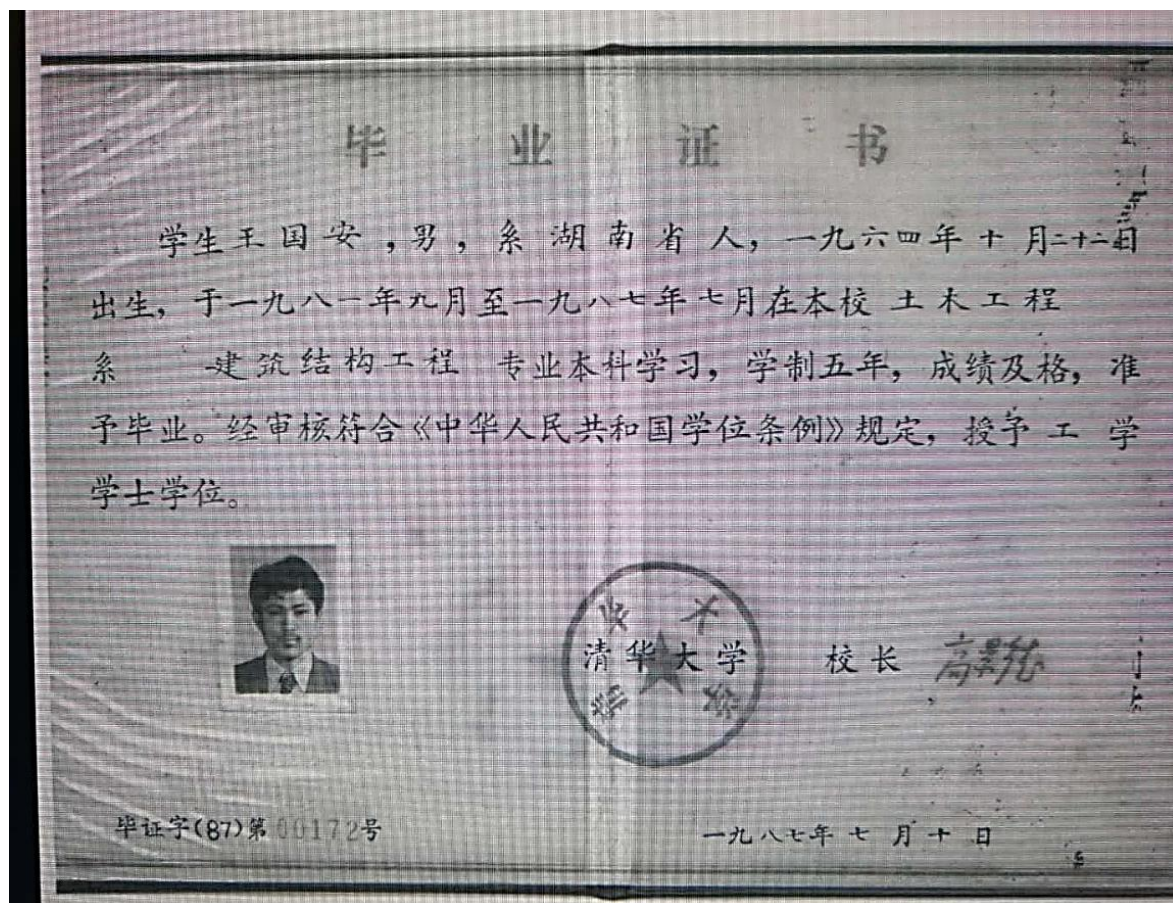 毕业证书
学生王国安,男,系湖南省人,一九六四年十月二十二日
出生,于一九八一年九月至一九八七年七月在本校土木工程
系 建筑结构工程 专业本科学习,学制五年,成绩及格,准
予毕业。经审核符合《中华人民共和国学位条例》规定,授予工学
学士学位。
清华大学
清华大学 校长 高景德
毕证字(87)第00172号
一九八七年七月十日